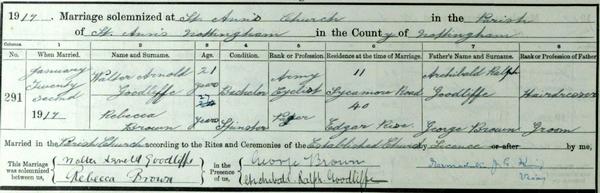 1917. Marriage solemnized at St. Ann's Church in the Parish
of St. Ann's Nottingham in the County of Nottingham
Columns:— 1 2 3 4 5 6 7 8
No. When Married. Name and Surname. Ages. Condition. Rank or Profession. Residence at the time of Marriage. Father's Name and Surname. Rank or Profession of Father.
291
January Twenty Second 1917
Walter Arnold Goodliffe
21 years
Bachelor
Army Cyclist
11 Sycamore Road
Archibald Ralph Goodliffe
Hairdresser
Rebecca Brown
27 years
Spinster
40 Edgar Rise
George Brown
Groom
Married in the Parish Church according to the Rites and Ceremonies of the Established Church, by Licence or after by me,
This Marriage was solemnized between us,
Walter Arnold Goodliffe
Rebecca Brown
in the Presence of us,
George Brown
Archibald Ralph Goodliffe
Vicar